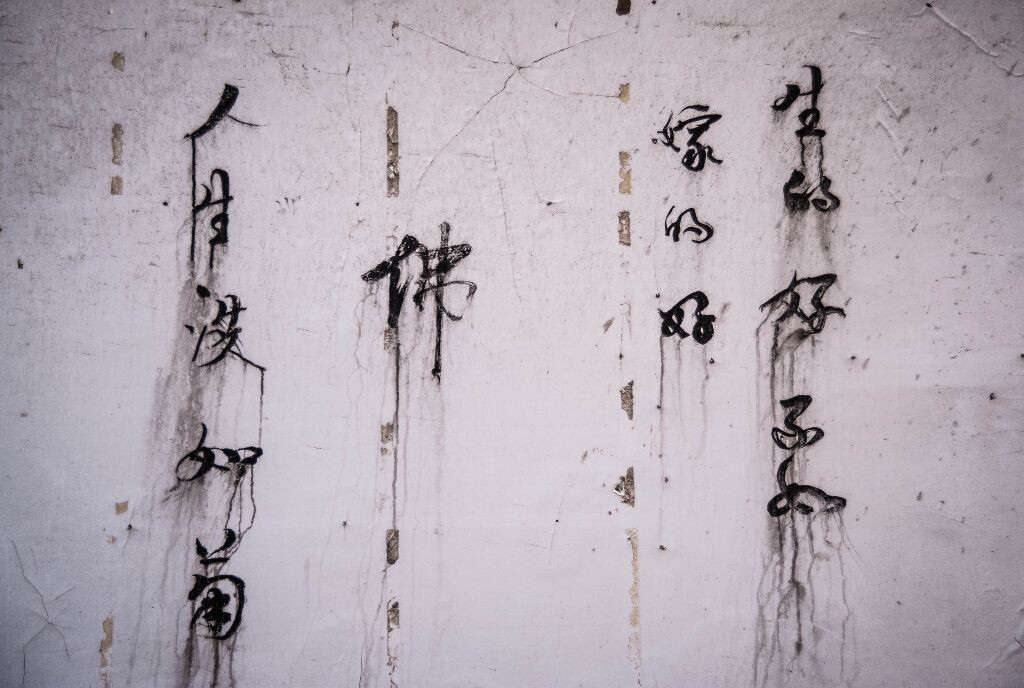 生的好不如
嫁的好
佛
人生没如菊